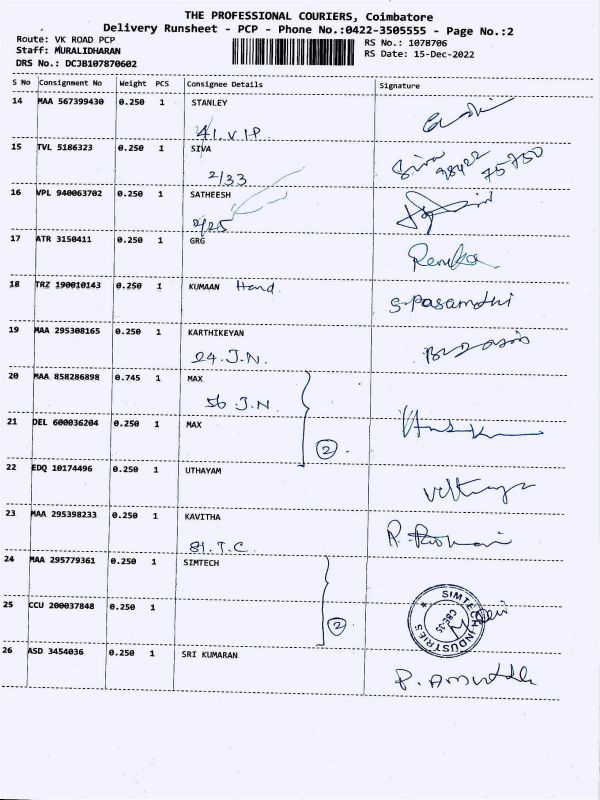 THE PROFESSIONAL COURIERS, Coimbatore
Delivery Runsheet - PCP - Phone No.:0422-3505555 - Page No.:2
Route: VK ROAD PCP
Staff: MURALIDHARAN
DRS No.: DCJB107870602
RS No.: 1078706
RS Date: 15-Dec-2022
S No Consignment No Weight PCS Consignee Details Signature
14 MAA 567399430 0.250 1 STANLEY
41. V.I.P.
15 TVL 5186323 0.250 1 SIVA Siva 98422 75750
2/33
16 VPL 940063702 0.250 1 SATHEESH
2/25
17 ATR 3150411 0.250 1 GRG Renuka
18 TRZ 190010143 0.250 1 KUMAAN Hand. S. Pasamdhi
19 MAA 295308165 0.250 1 KARTHIKEYAN
24. J.N.
20 MAA 858286898 0.745 1 MAX
56 J.N.
21 DEL 600036204 0.250 1 MAX
2
22 EDQ 10174496 0.250 1 UTHAYAM
23 MAA 295398233 0.250 1 KAVITHA
81. T.C.
24 MAA 295779361 0.250 1 SIMTECH
25 CCU 200037848 0.250 1
2
SIMTECH INDUSTRIES
CBE-35
26 ASD 3454036 0.250 1 SRI KUMARAN